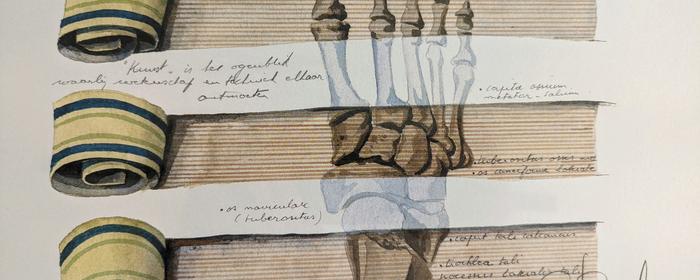 "Kunst" is het ogenblik
waarbij wetenschap en techniek elkaar
ontmoeten
• capita ossium
metatar-salium
• tuberositas ossis
• os cuneiforme laterale
• os naviculare
(tuberositas)
• caput tali
• trochlea tali
processus lateralis tali